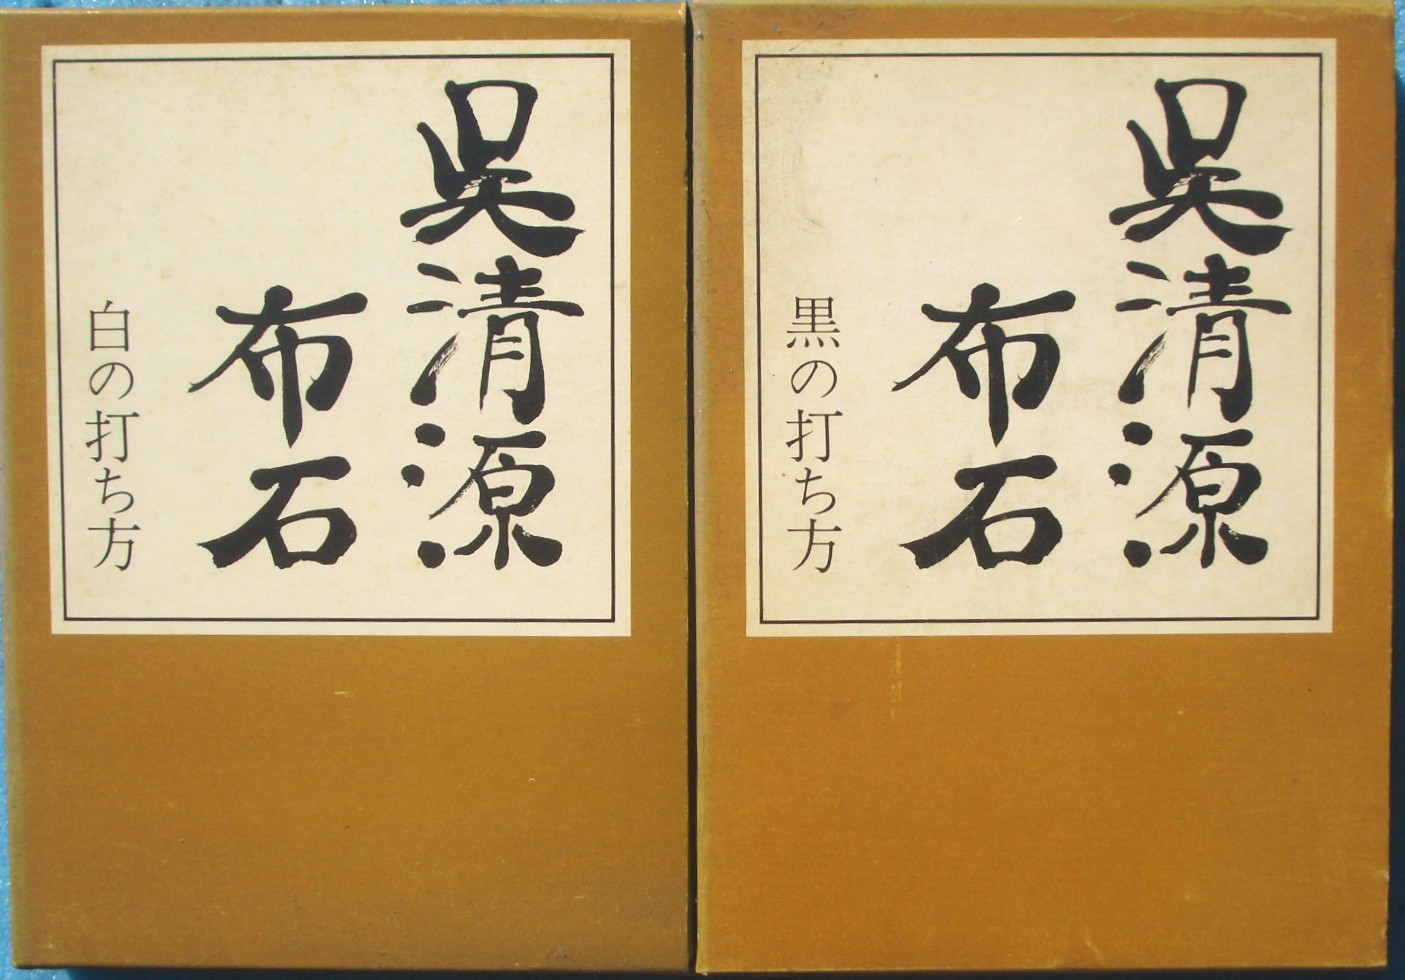 呉清源
布石
白の打ち方
呉清源
布石
黒の打ち方